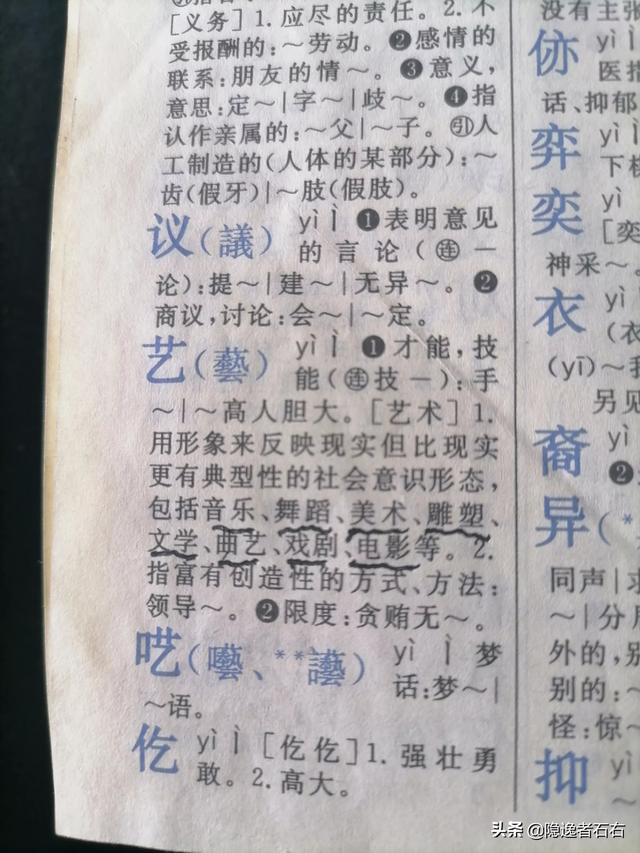 [义务] 1. 应尽的责任。2. 不
受报酬的:～劳动。❷感情的
联系:朋友的情～。❸意义,
意思:定～|字～|歧～。❹指
认作亲属的:～父|～子。㊁人
工制造的(人体的某部分):～
齿(假牙)|～肢(假肢)。
议(議) yì ㄧˋ ❶表明意见
的言论(㊣一
论):提～|建～|无异～。❷
商议,讨论:会～|～定。
艺(藝) yì ㄧˋ ❶才能,技
能(㊣技一):手
～|～高人胆大。[艺术] 1.
用形象来反映现实但比现实
更有典型性的社会意识形态,
包括音乐、舞蹈、美术、雕塑、
文学、曲艺、戏剧、电影等。2.
指富有创造性的方式、方法:
领导～。❷限度:贪贿无～。
呓(囈、**讛) yì ㄧˋ 梦
话:梦～|
～语。
仡 yì ㄧˋ [仡仡] 1. 强壮勇
敢。2. 高大。
没有主张
㑊 yì
医指
话、抑郁
弈 yì
下棋
奕 yì
[奕
神采～。
衣 yì
(衣
(yī)～我
另见
裔 yì
❷
异(*
同声|求
～|分
外的,别
别的:～
怪:惊～
抑 yì
～
头条 @隐逸者石右